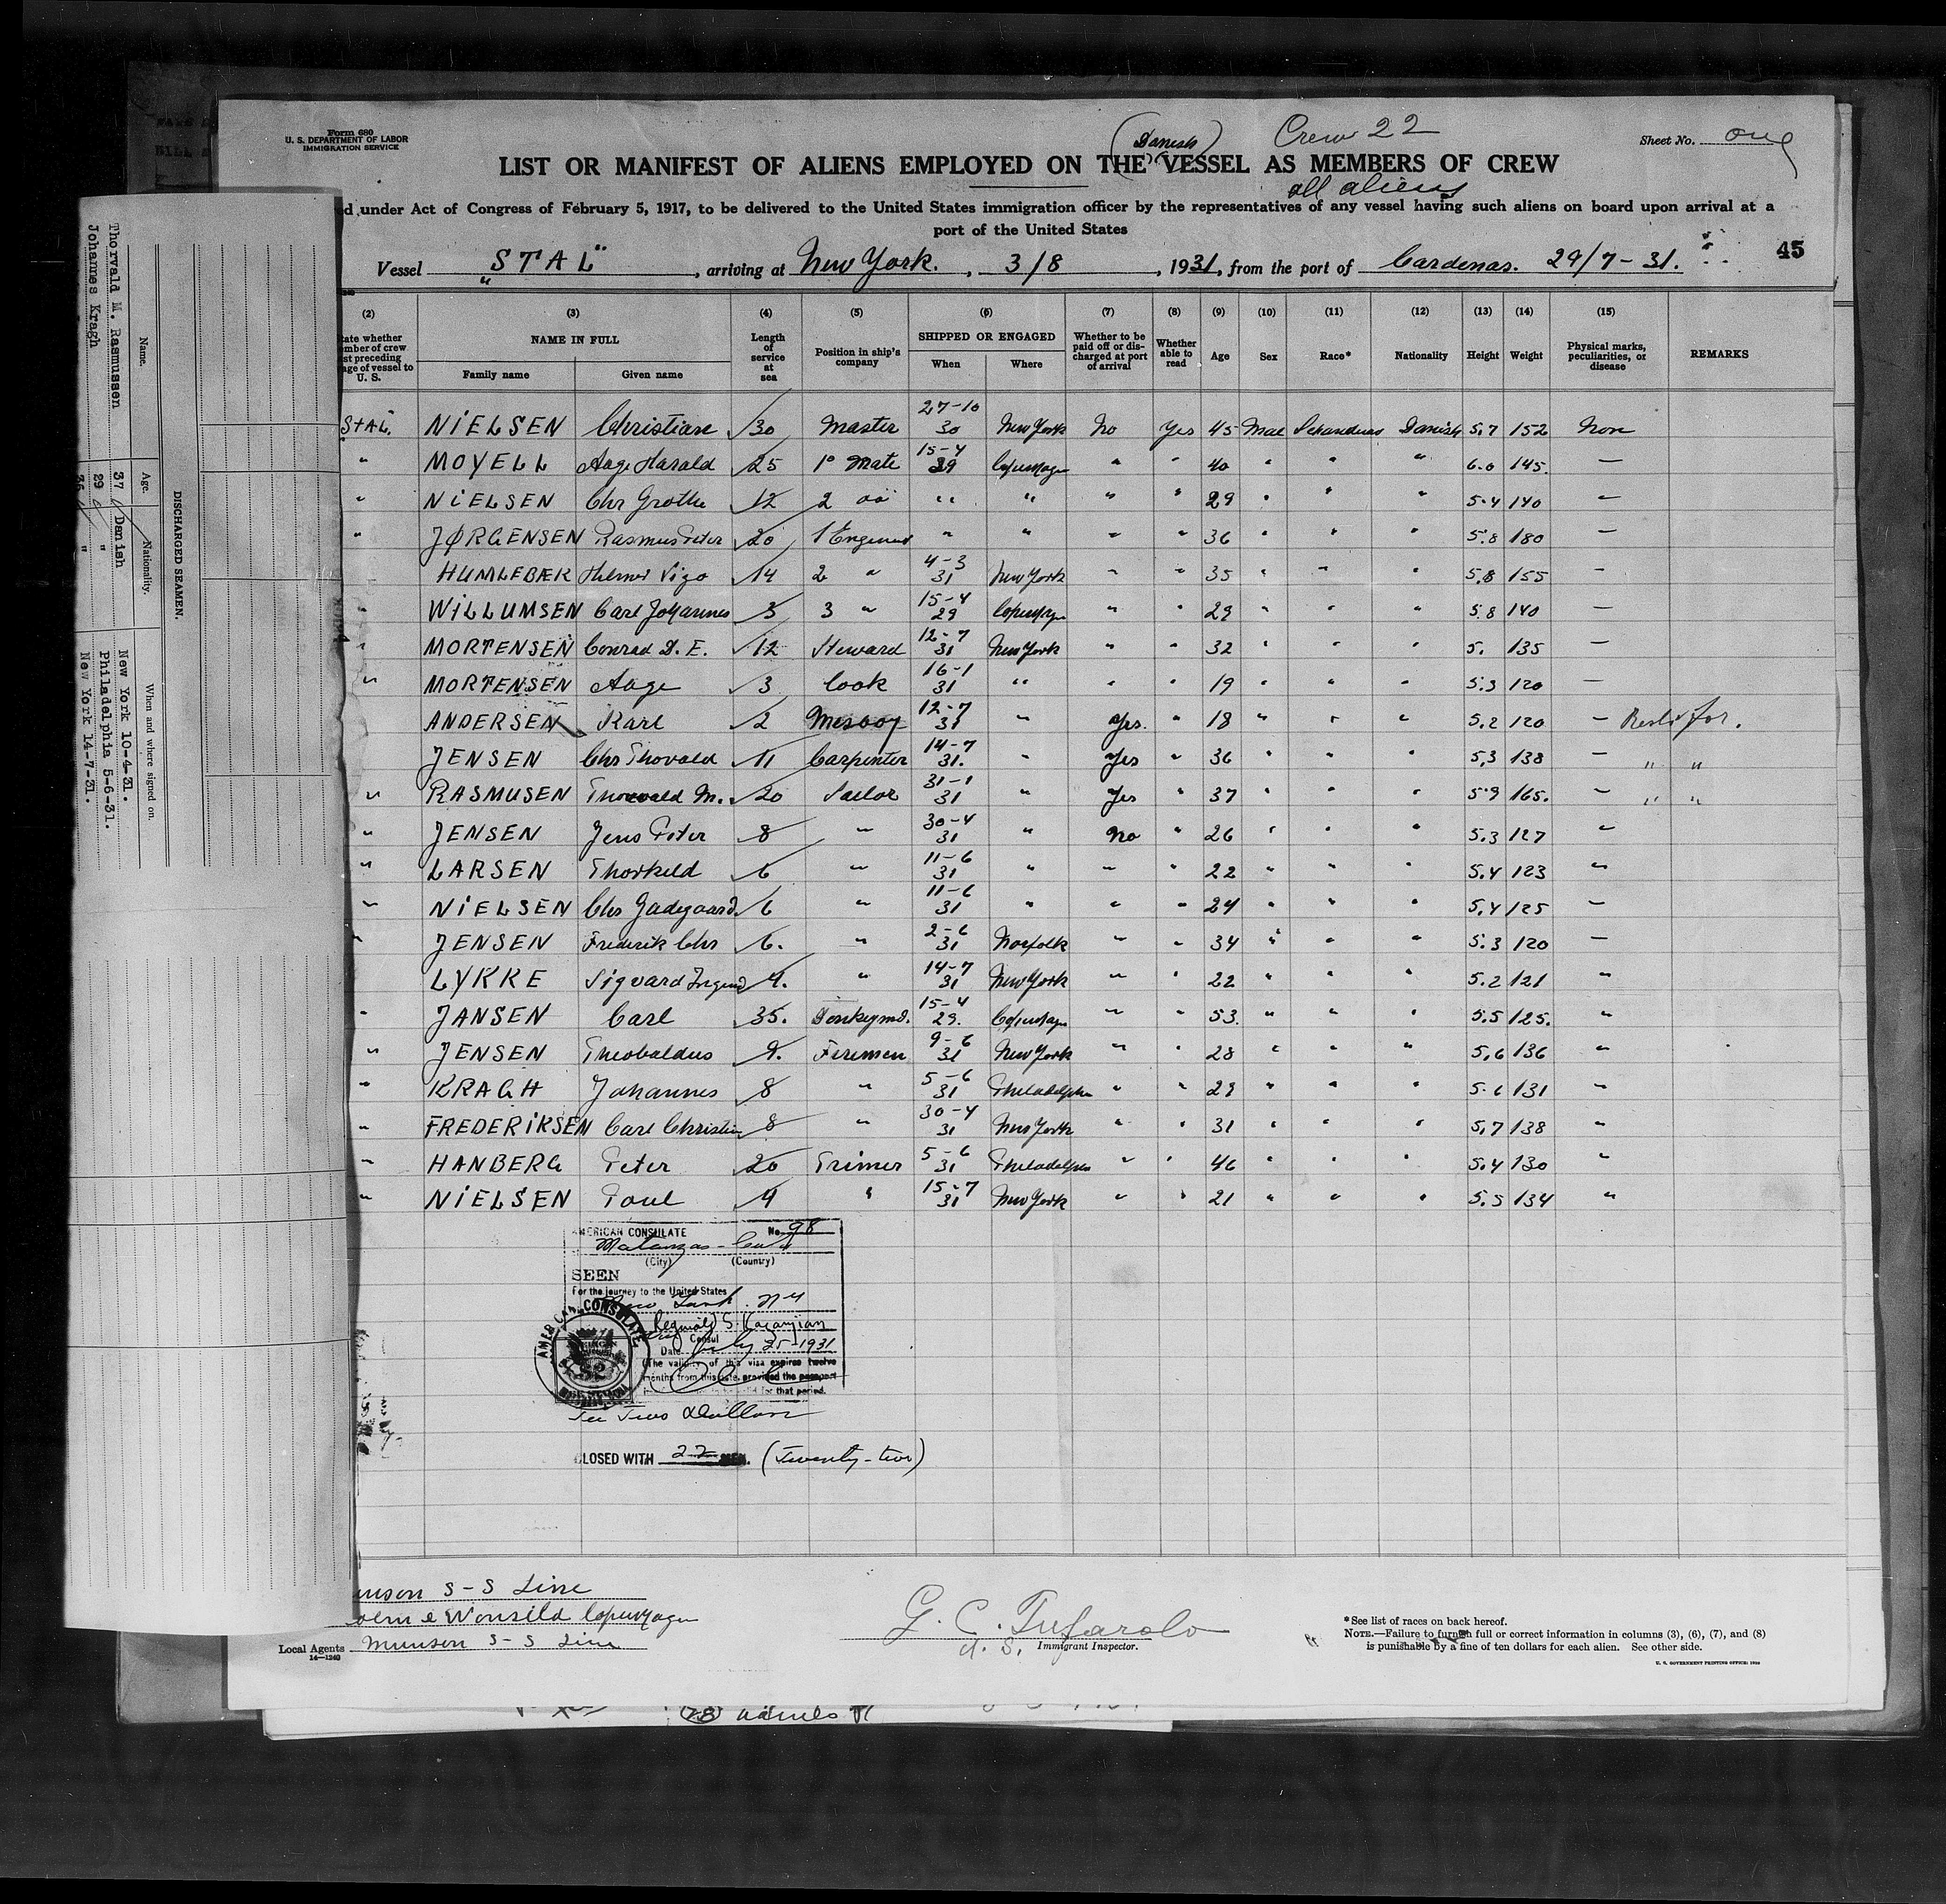 Form 680
U. S. DEPARTMENT OF LABOR
IMMIGRATION SERVICE
(Danish) Crew 22
Sheet No. one
LIST OR MANIFEST OF ALIENS EMPLOYED ON THE VESSEL AS MEMBERS OF CREW
all aliens
ed under Act of Congress of February 5, 1917, to be delivered to the United States immigration officer by the representatives of any vessel having such aliens on board upon arrival at a
port of the United States
45
Vessel "STAL", arriving at New York., 3/8, 1931, from the port of Cardenas. 29/7-31.
(2) (3) (4) (5) (6) (7) (8) (9) (10) (11) (12) (13) (14) (15)
State whether member of crew last preceding voyage of vessel to U. S. NAME IN FULL Family name Given name Length of service at sea Position in ship's company SHIPPED OR ENGAGED When Where Whether to be paid off or discharged at port of arrival Whether able to read Age Sex Race* Nationality Height Weight Physical marks, peculiarities, or disease REMARKS
STAL. NIELSEN Christian 30 Master 27-10 30 New York No Yes 45 Danish 5.7 152 Non
" MOYELL Aage Harald 25 1° Mate 15-4 29 " " 40 " " " 6.0 145. —
" NIELSEN Chr Grothe 12 2 " " " " 29 " " " 5.4 140 —
" JØRGENSEN Rasmus Peter 20 1 " " " " 36 " " " 5.8 180 —
HUMLEBÆK Vigo 14 2 " 4-3 31 New York " " 35 " " " 5.8 155 —
" WILLUMSEN Carl Johannes 3 3 " 15-4 29 " " 29 " " " 5.8 140 —
" MORTENSEN Conrad D. E. 12 Steward 12-7 31 New York " " 32 " " " 5. 135 —
" MORTENSEN Aage 3 Cook 16-1 31 " " " 19 " " " 5.3 120 —
ANDERSEN Karl 2 12-7 31 " Yes. " 18 " " " 5.2 120 —
JENSEN Chr Thovald 11 Carpenter 14-7 31. " Yes " 36 " " " 5,3 138 — " "
" RASMUSEN Thorvald M. 20 Sailor 31-1 31 " Yes " 37 " " " 5.9 165. — " "
" JENSEN Jens Peter 8 " 30-4 31 " No " 26 " " " 5.3 127 "
" LARSEN Thorkild 6 " 11-6 31 " " " 22 " " " 5.4 123 "
" NIELSEN Chr Gadegaard 6 " 11-6 31 " " " 24 " " " 5.4 125 —
" JENSEN Frederik Chr 6. " 2-6 31 Norfolk " " 34 " " " 5.3 120 —
LYKKE Sigvard 4. " 14-7 31 New York " " 22 " " " 5.2 121 "
" JANSEN Carl 35. Donkeymd. 15-4 29. " " 53. " " " 5.5 125. "
" JENSEN Theobaldus 9. Firemen 9-6 31 New York " " 28 " " " 5,6 136 "
" KRAGH Johannes 8 " 5-6 31 Philadelphia " " 29 " " " 5.6 131 "
" FREDERIKSEN Carl Christian 8 " 30-4 31 New York " " 31 " " " 5,7 138 "
" HANBERG Peter 20 Trimer 5-6 31 Philadelphia " " 46 " " " 5.4 130 "
" NIELSEN Poul 4 " 15-7 31 New York " " 21 " " " 5.5 134 "
AMERICAN CONSULATE No. 98
Matanzas - Cuba
(City) (Country)
SEEN
For the journey to the United States
New York. N Y
Reginald S. Kazanjian
Consul
Date July 25-1931
(The validity of this visa expires twelve
months from this date, provided the passport
for that period.
AMERICAN CONSULATE
Fee Two Dollars
CLOSED WITH 22 MEN. (Twenty-two)
unson S-S Line
Wonsild Copenhagen
Local Agents Munson S-S Line
14-1240
G. C. Tufarolo
U. S. Immigrant Inspector.
*See list of races on back hereof.
NOTE.—Failure to furnish full or correct information in columns (3), (6), (7), and (8)
is punishable by a fine of ten dollars for each alien. See other side.
DISCHARGED SEAMEN.
Name. Age. Nationality. When and where signed on.
Thorvald M. Rasmussen 37 Danish New York 10-4-31.
Johannes Kragh 29 " Philadelphia 5-6-31.
" New York 14-7-31.